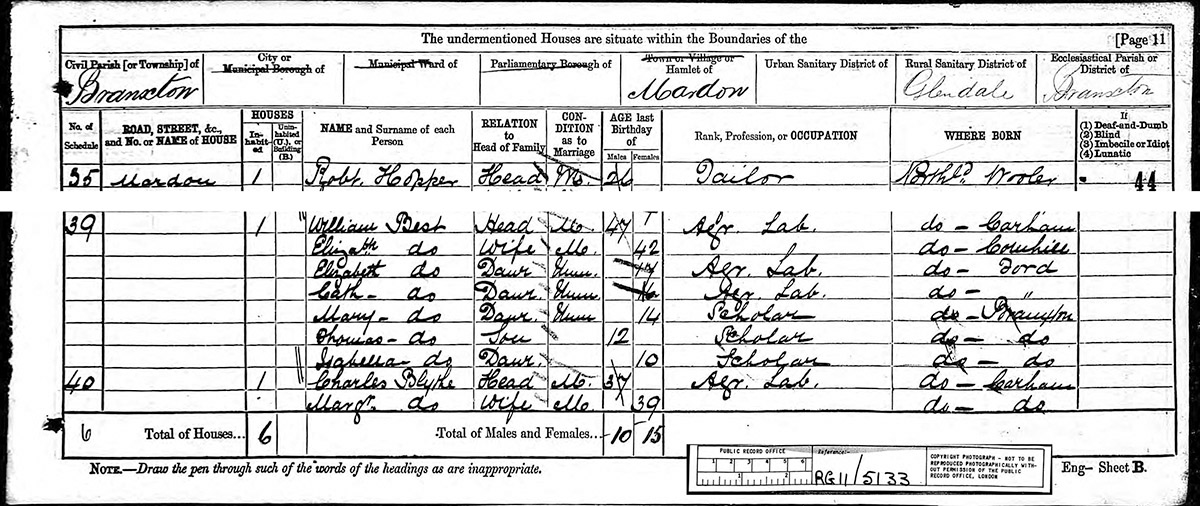 The undermentioned Houses are situate within the Boundaries of the [Page 11
Civil Parish [or Township] of City or Municipal Borough of Municipal Ward of Parliamentary Borough of Town or Village or Hamlet of Urban Sanitary District of Rural Sanitary District of Ecclesiastical Parish or District of
Branxton Mardon Glendale Branxton
No. of Schedule ROAD, STREET, &c., and No. or NAME of HOUSE HOUSES In-habit-ed Unin-habited (U.), or Building (B.) NAME and Surname of each Person RELATION to Head of Family CON-DITION as to Marriage AGE last Birthday of Males Females Rank, Profession, or OCCUPATION WHERE BORN If (1) Deaf-and-Dumb (2) Blind (3) Imbecile or Idiot (4) Lunatic
35 Mardon 1 Robt. Hopper Head M. 26 Tailor Northld. Wooler 44
39 1 William Best Head M. 47 Agr. Lab. do - Carham
Elizabth do Wife M. 42 do - Cornhill
Elizabeth do Daur. Unm. Agr. Lab. do - Ford
Cath - do Daur. Unm. 16 Agr. Lab. do - "
Mary - do Daur. Unm. 14 Scholar do - Branxton
Thomas - do Son 12 Scholar do - do
Isabella - do Daur. 10 Scholar do - do
40 1 Charles Blythe Head M. 37 Agr. Lab. do - Carham
Margt. do Wife M. 39 do - do
6 Total of Houses... 6 Total of Males and Females... 10 15
NOTE.—Draw the pen through such of the words of the headings as are inappropriate.
PUBLIC RECORD OFFICE
1 2 3 4 5 6
1 2
Reference:-
RG 11/5133
COPYRIGHT PHOTOGRAPH - NOT TO BE REPRODUCED PHOTOGRAPHICALLY WITHOUT PERMISSION OF THE PUBLIC RECORD OFFICE, LONDON
Eng- Sheet B.